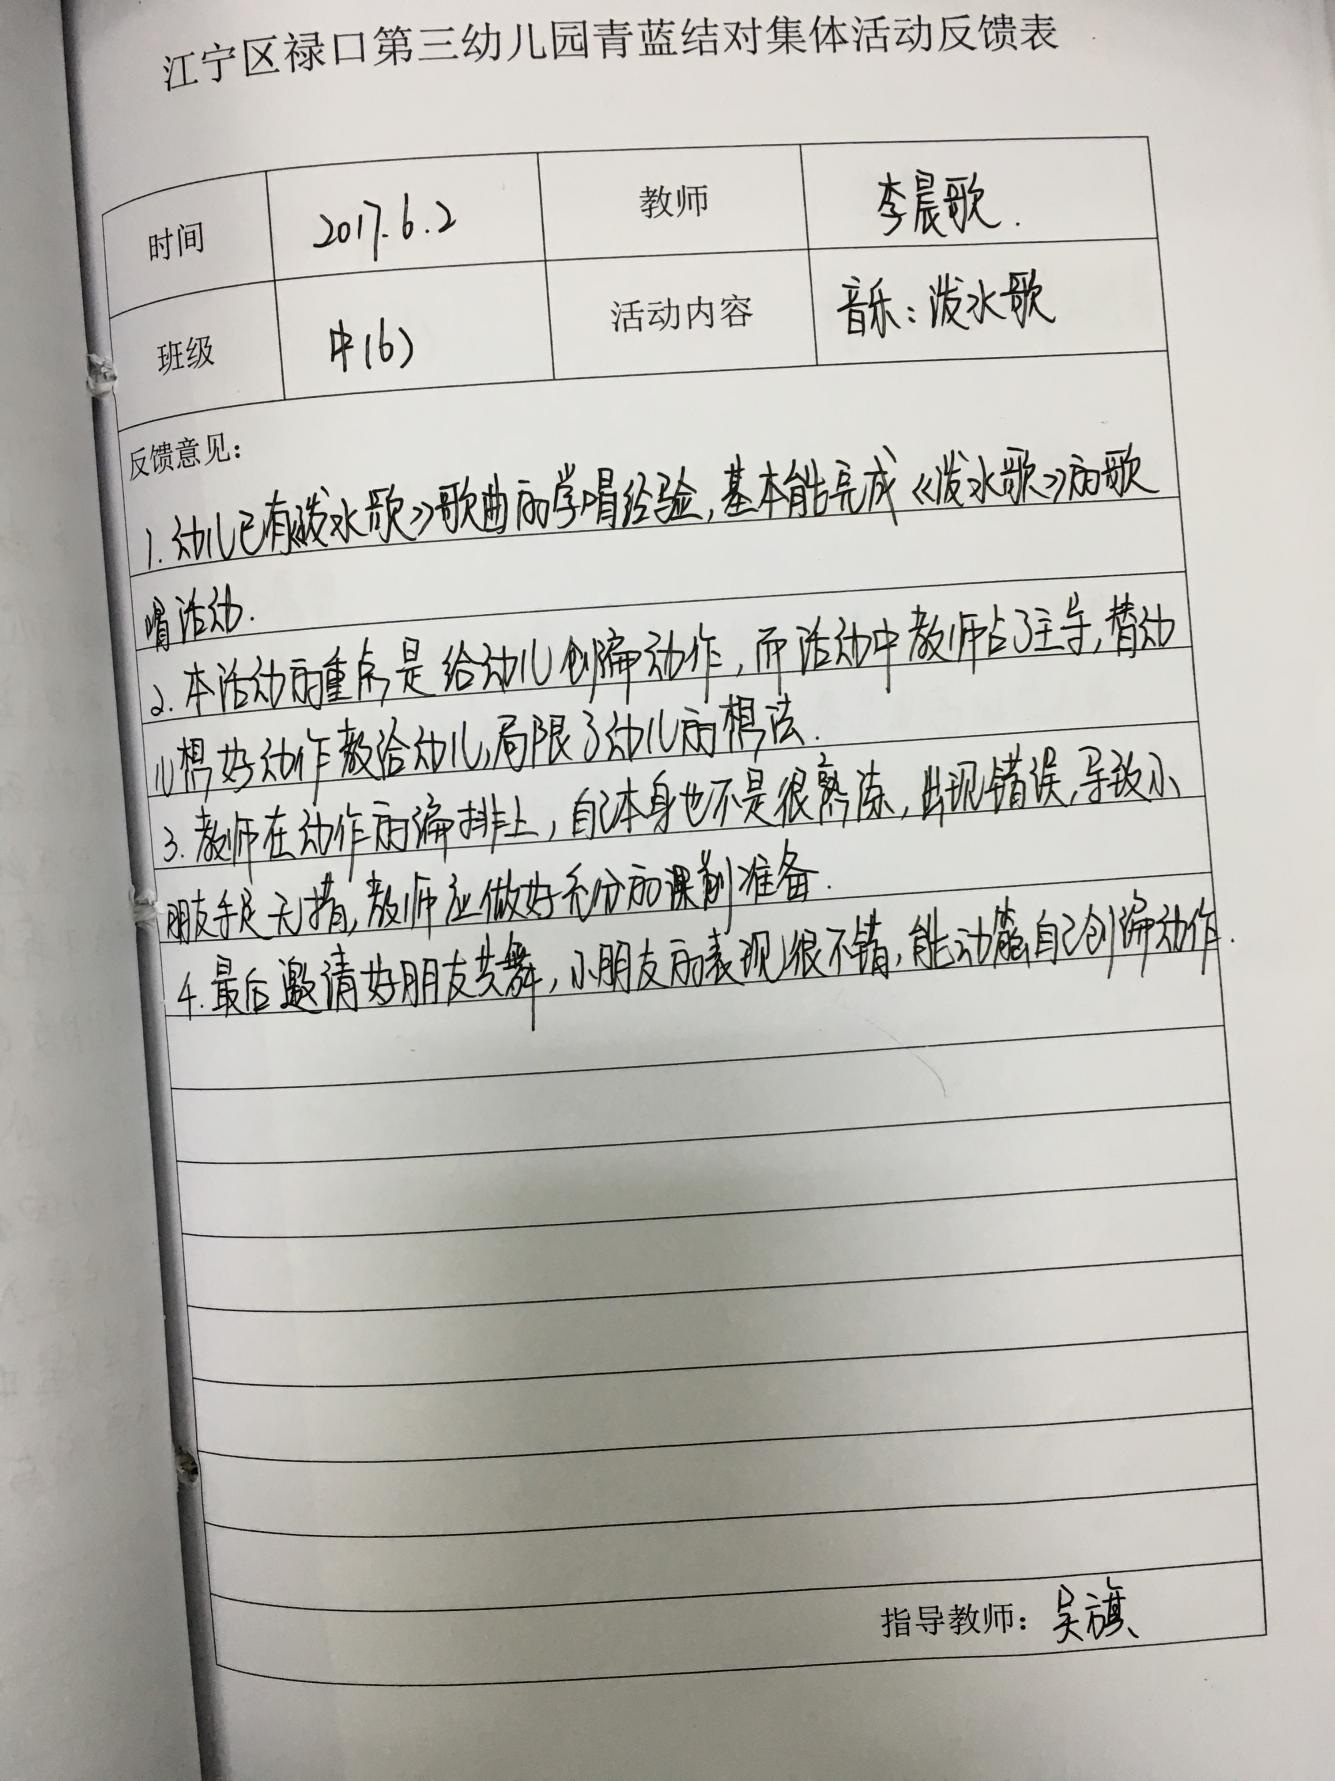 江宁区禄口第三幼儿园青蓝结对集体活动反馈表
时间 2017.6.2 教师 李晨歌.
班级 中(6) 活动内容 音乐:泼水歌
反馈意见:
1.幼儿已有《泼水歌》歌曲的学唱经验,基本能完成《泼水歌》的歌
唱活动.
2.本活动的重点是给幼儿创编动作,而活动中教师占了主导,替幼
儿想好动作教给幼儿,局限了幼儿的想法.
3.教师在动作的编排上,自己本身也不是很熟练,出现错误,导致小
朋友手足无措,教师应做好充分的课前准备.
4.最后邀请好朋友共舞,小朋友的表现很不错,能动脑自己创编动作.
指导教师:吴旗